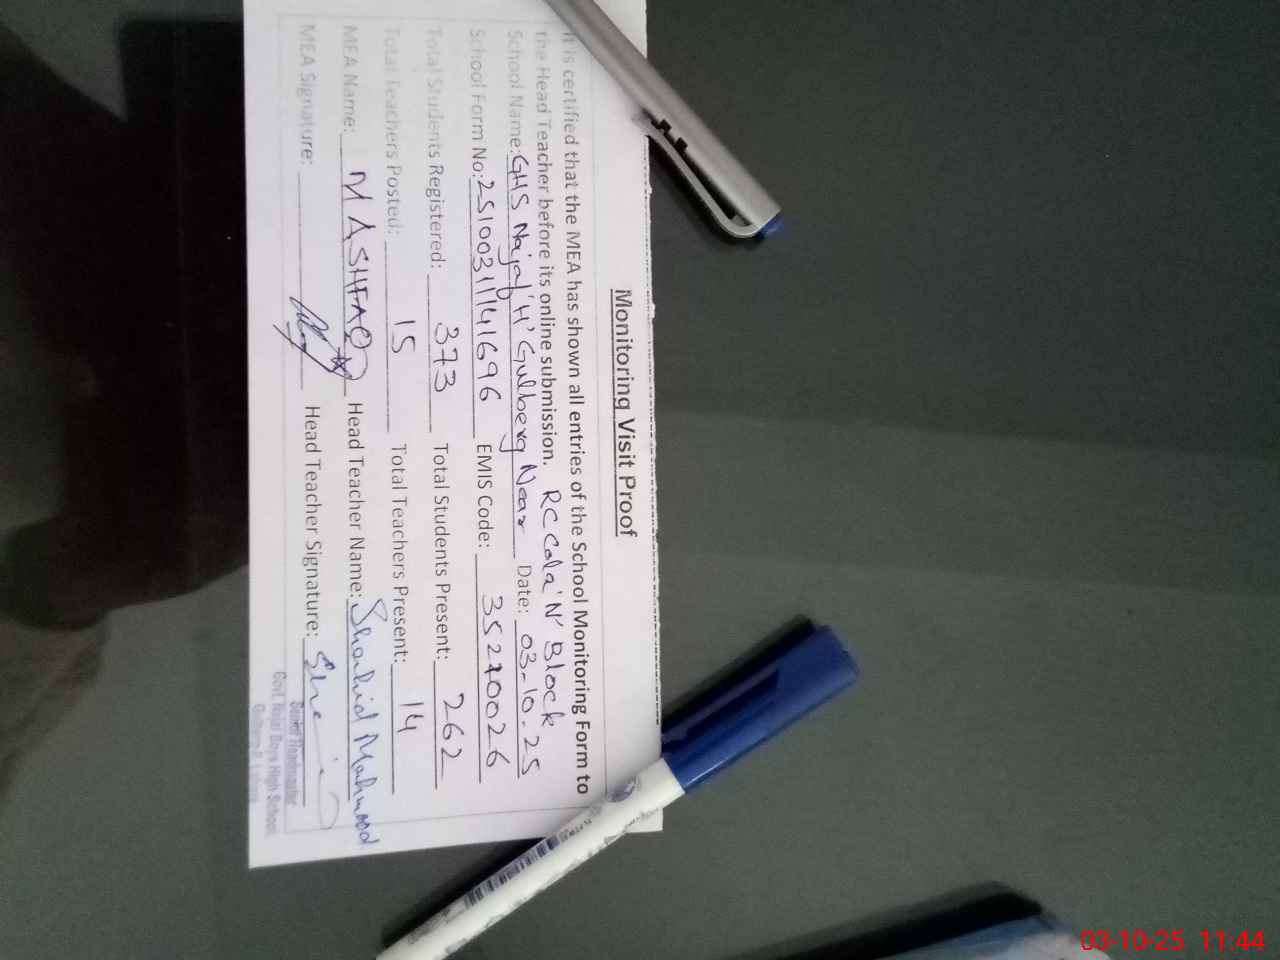 Monitoring Visit Proof
It is certified that the MEA has shown all entries of the School Monitoring Form to
the Head Teacher before its online submission. RC Cola 'N' Block
School Name: GHS Najaf 'H' Gulberg Near Date: 03-10-25
School Form No: 2510031141696 EMIS Code: 35210026
Total Students Registered: 373 Total Students Present: 262
Total Teachers Posted: 15 Total Teachers Present: 14
MEA Name: M ASHFAQ Head Teacher Name: Shahid Mahmood
MEA Signature: Head Teacher Signature:
Headmaster
High School
03-10-25 11:44